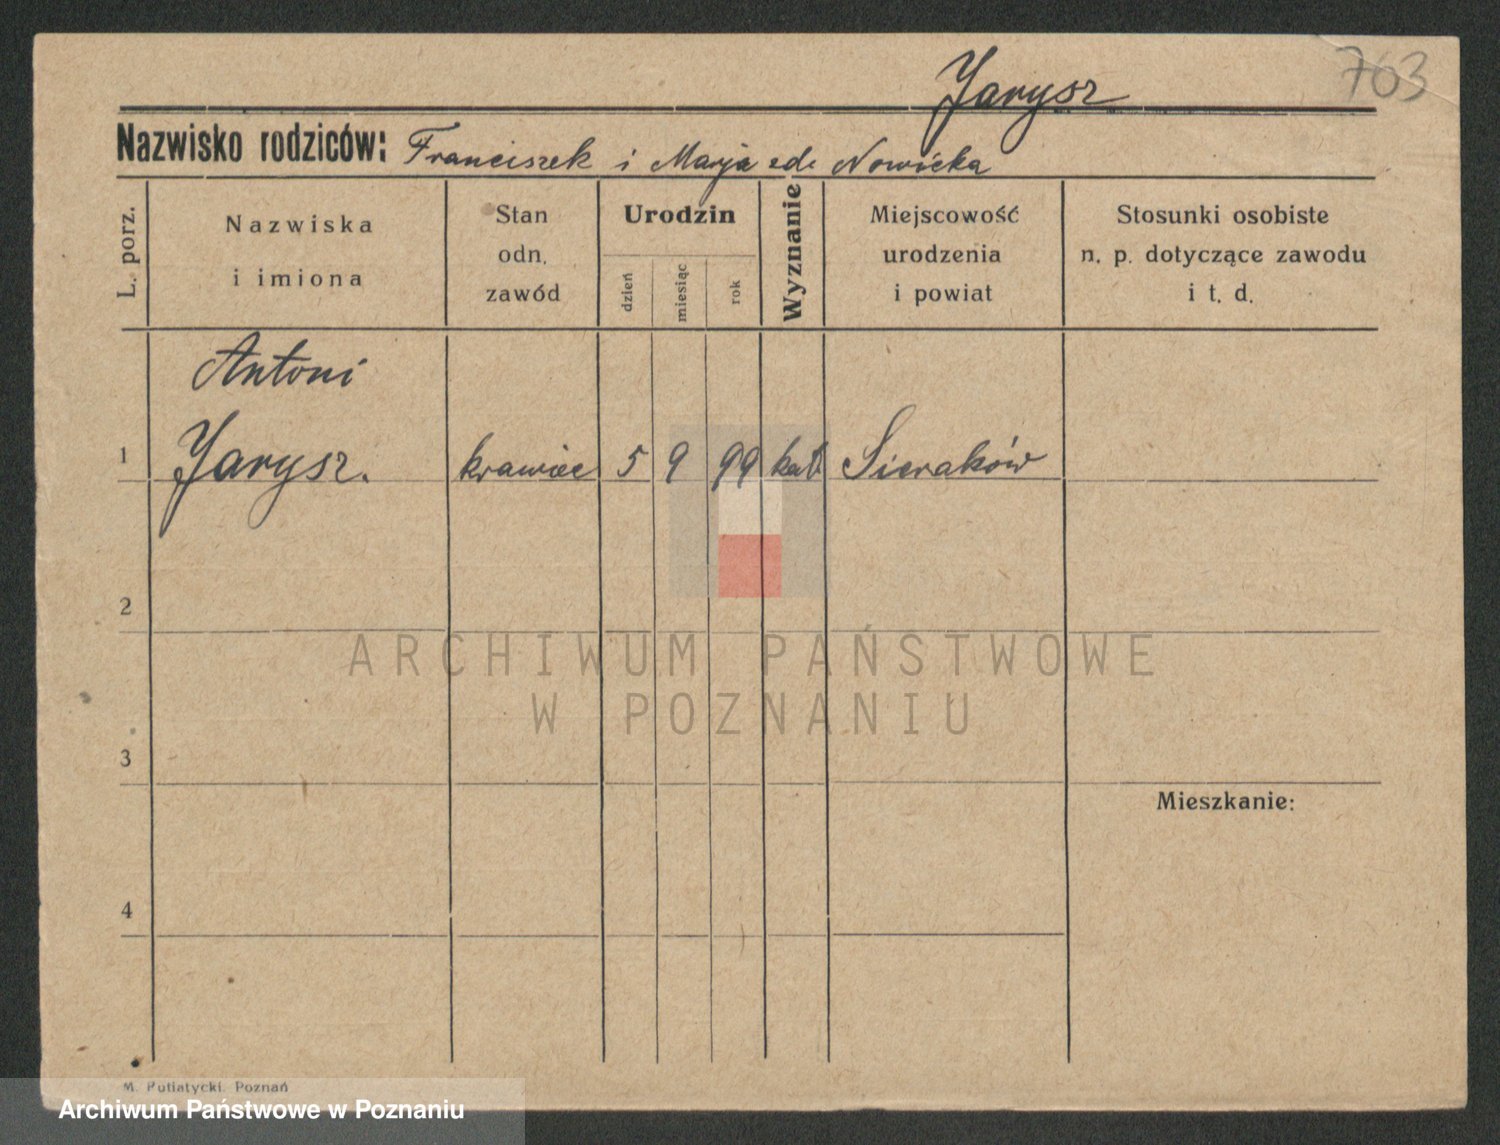 Jarysz 763
Nazwisko rodziców: Franciszek i Marja zd. Nowicka
L. porz.
Nazwiska
i imiona
Stan
odn.
zawód
Urodzin
dzień
miesiąc
rok
Wyznanie
Miejscowość
urodzenia
i powiat
Stosunki osobiste
n. p. dotyczące zawodu
i t. d.
Antoni
1 Jarysz. krawiec 5 9 99 kat Sieraków
2
ARCHIWUM PAŃSTWOWE
W POZNANIU
3
Mieszkanie:
4
M. Putiatycki. Poznań
Archiwum Państwowe w Poznaniu